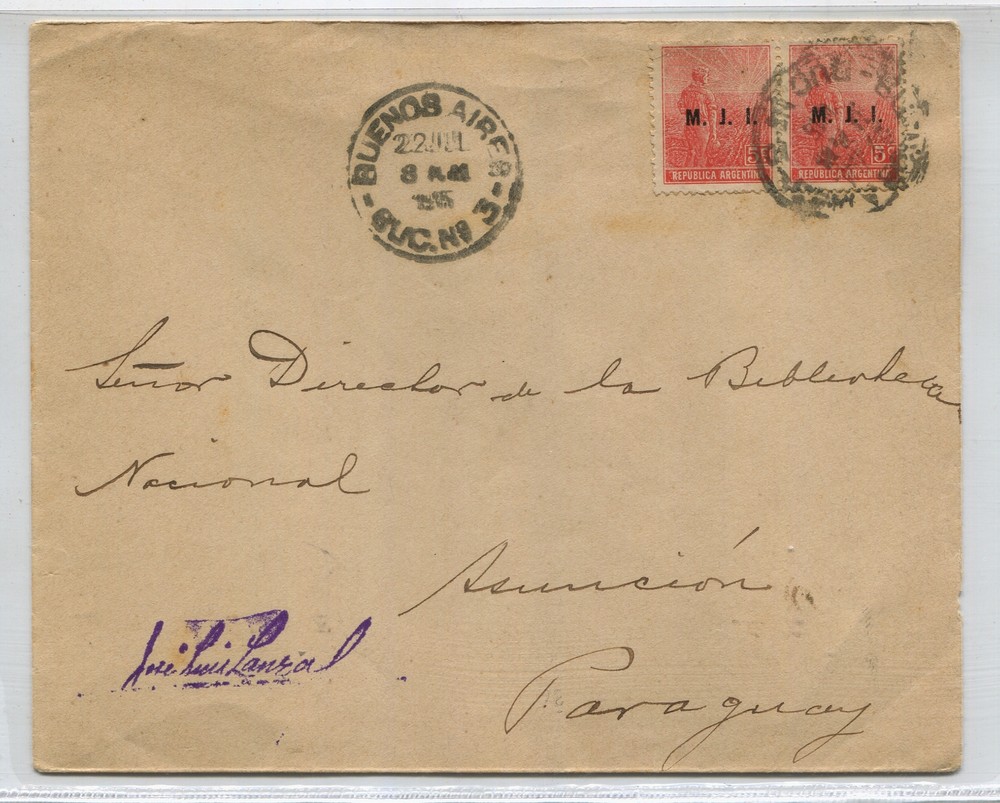 BUENOS AIRES
22 JUL
8
1915
SUC. Nº 3
M. J. I. M. J. I.
5 5c
REPUBLICA ARGENTIN REPUBLICA ARGENTIN
BUC
Señor Director de la Biblioteca
Nacional
Asunción
José Luis
Paraguay